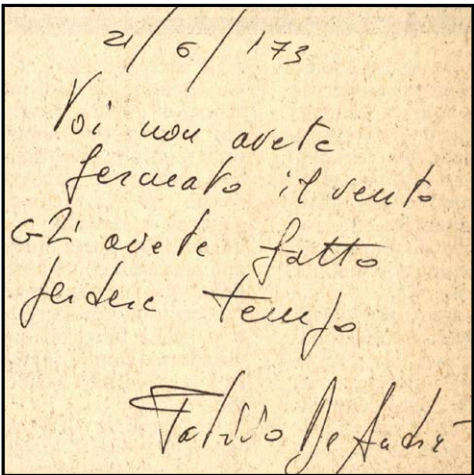 21/6/'73
Voi non avete
fermato il vento
Gli avete fatto
perdere tempo
Fabrizio De André